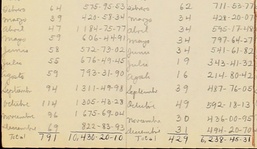 Febrero 64 575-95-63 Febrero 62 711-55-77
Marzo 39 423-58-34 Marzo 34 428-20-07
Abril 47 1184-75-77 Abril 34 595-17-48
Mayo 59 606-44-91 Mayo 34 797-64-37
Junio 58 572-73-02 Junio 34 541-61-82
Julio 55 676-49-45 Julio 19 343-41-32
Agosto 59 793-31-90 Agosto 16 214-80-42
Septiembre 94 1311-49-98 Septiembre 39 487-76-05
Octubre 114 1305-43-23 Octubre 49 592-18-13
Noviembre 36 1675-69-04 Noviembre 30 436-00-95
Diciembre 69 822-83-93 Diciembre 31 494-20-70
Total 791 10,430-20-10 Total 429 6,238-45-31